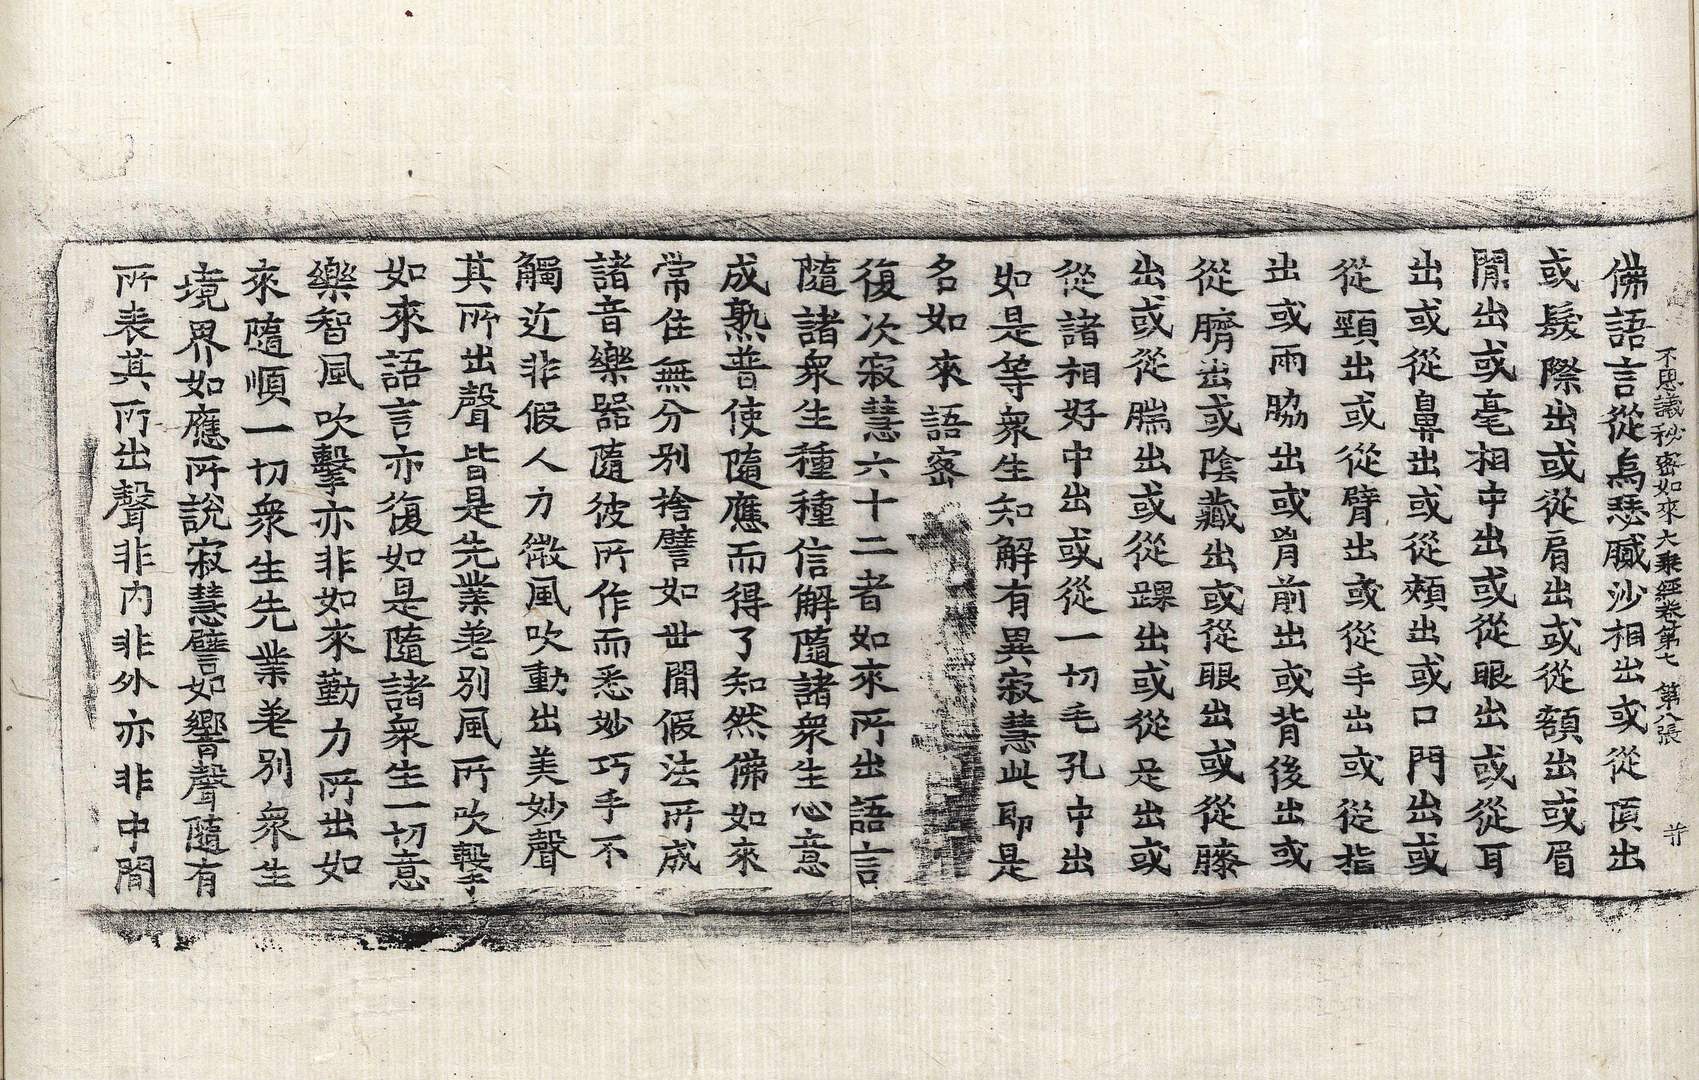 不思議秘密如來大乘經卷第七 第八張
佛語言從烏瑟膩沙相出或從頂出
或髮際出或從肩出或從額出或眉
間出或毫相中出或從眼出或從耳
出或從鼻出或從頰出或口門出或
從頸出或從臂出或從手出或從指
出或兩脇出或胷前出或背後出或
從臍出或陰藏出或從眼出或從膝
出或從腨出或從踝出或從足出或
從諸相好中出或從一切毛孔中出
如是等衆生知解有異寂慧此即是
名如來語密
復次寂慧六十二者如來所出語言
隨諸衆生種種信解隨諸衆生心意
成熟普使隨應而得了知然佛如來
常住無分別捨譬如世間假法所成
諸音樂器隨彼所作而悉妙巧手不
觸近非假人力微風吹動出美妙聲
其所出聲皆是先業差別風所吹擊
如來語言亦復如是隨諸衆生一切意
樂智風吹擊亦非如來勤力所出如
來隨順一切衆生先業差別衆生
境界如應所說寂慧譬如響聲隨有
所表其所出聲非內非外亦非中間